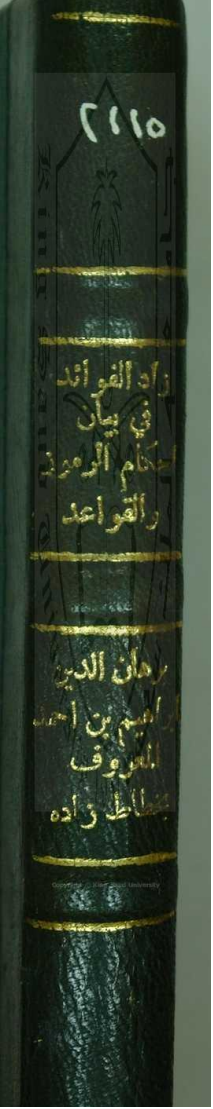 ٢١١٥
زاد الفوائد
في بيان
احكام الرموز
والقواعد
برهان الدين
ابراهيم بن احمد
المعروف
زاده
Copyright © King Saud University